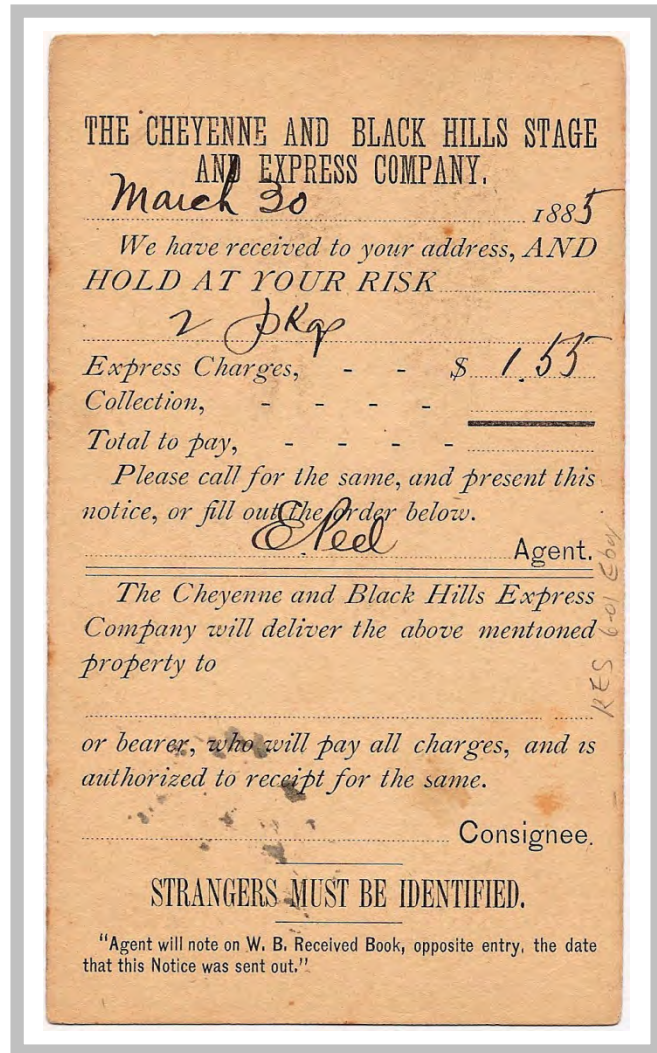 THE CHEYENNE AND BLACK HILLS STAGE
AND EXPRESS COMPANY.
March 30 1885
We have received to your address, AND
HOLD AT YOUR RISK
2 pkgs
Express Charges, - - $ 1.55
Collection, - - - -
Total to pay, - - - -
Please call for the same, and present this
notice, or fill out the order below.
Agent.
The Cheyenne and Black Hills Express
Company will deliver the above mentioned
property to
or bearer, who will pay all charges, and is
authorized to receipt for the same.
Consignee.
STRANGERS MUST BE IDENTIFIED.
"Agent will note on W. B. Received Book, opposite entry, the date
that this Notice was sent out."
RES 6-01